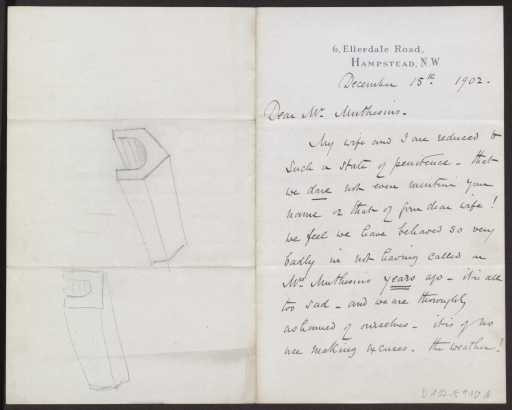 6, Ellerdale Road,
HAMPSTEAD, N.W
December 15th 1902.
Dear Mr. Muthesius.
My wife and I are reduced to
such a state of penitence - that
we dare not even mention your
name or that of your dear wife!
we feel we have behaved so very
badly in not having called on
Mrs Muthesius years ago - it is all
too sad - and we are thoroughly
ashamed of ourselves - it is of no
use making excuses. the weather!